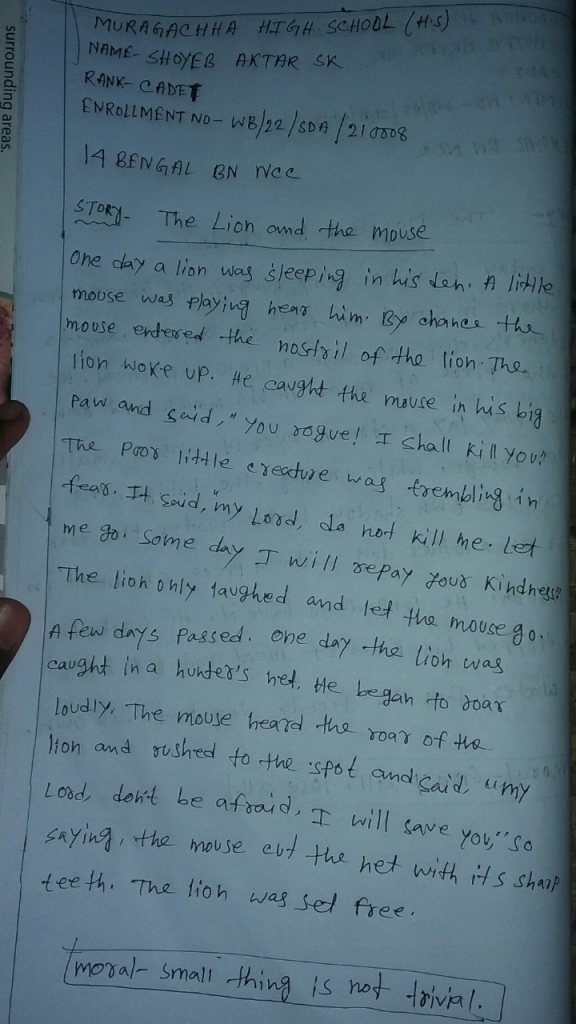 surrounding areas.
MURAGACHHA HIGH SCHOOL (H.S)
NAME- SHOYEB AKTAR SK
RANK- CADET
ENROLLMENT NO- WB/22/SDA/210808
14 BENGAL BN NCC
STORY- The Lion and the mouse
One day a lion was sleeping in his den. A little
mouse was playing near him. By chance the
mouse entered the nostril of the lion. The
lion woke up. He caught the mouse in his big
paw and said, "you rogue! I shall kill you."
The poor little creature was trembling in
fear. It said, "my Lord, do not kill me. Let
me go. Some day I will repay your kindness."
The lion only laughed and let the mouse go.
A few days passed. One day the lion was
caught in a hunter's net. He began to roar
loudly. The mouse heard the roar of the
lion and rushed to the spot and said, "my
Lord, don't be afraid, I will save you," so
saying, the mouse cut the net with its sharp
teeth. The lion was set free.
moral- small thing is not trivial.